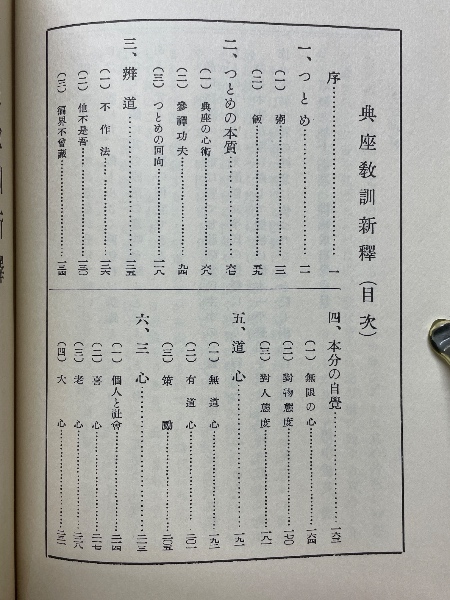 典座教訓新釋(目次)
序……………一
一、つとめ……………一一
(一) 粥……………一三
(二) 飯……………五九
二、つとめの本質……………六七
(一) 典座の心術……………六九
(二) 參禪功夫……………九四
(三) つとめの回向……………一一八
三、辨道……………一三五
(一) 不作法……………一三六
(二) 他不是吾……………一三〇
(三) 徧界不曾藏……………一三四
四、本分の自覺……………一六三
(一) 無限の心……………一六四
(二) 對物態度……………一七〇
(三) 對人態度……………一八一
五、道心……………一九一
(一) 無道心……………一九二
(二) 有道心……………二〇一
(三) 策勵……………二〇五
六、三心……………二一三
(一) 個人と社會……………二一四
(二) 喜心……………二一七
(三) 老心……………二二八
(四) 大心……………二三二